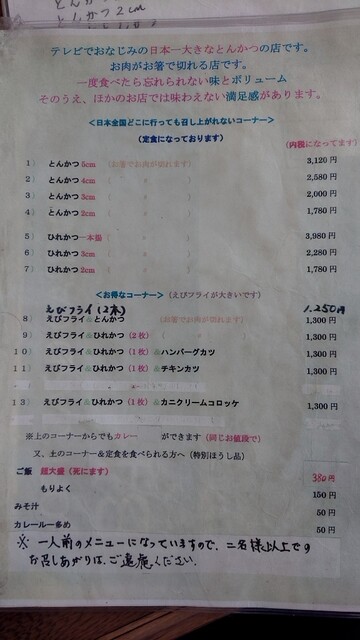 とんかつ2cm
テレビでおなじみの日本一大きなとんかつの店です。
お肉がお箸で切れる店です。
一度食べたら忘れられない味とボリューム
そのうえ、ほかのお店では味わえない満足感があります。
<日本全国どこに行っても召し上がれないコーナー>
(定食になっております) (内税になってます)
1) とんかつ5cm (お箸でお肉が切れます) 3,120円
2) とんかつ4cm ( 〃 ) 2,580円
3) とんかつ3cm ( 〃 ) 2,000円
4) とんかつ2cm ( 〃 ) 1,780円
5) ひれかつ一本揚 ( 〃 ) 3,980円
6) ひれかつ3cm ( 〃 ) 2,280円
7) ひれかつ2cm ( 〃 ) 1,780円
<お得なコーナー>(えびフライが大きいです)
えびフライ(2本) 1.250円
8) えびフライ&とんかつ (お箸でお肉が切れます) 1,300円
9) えびフライ&ひれかつ(2枚) 1,300円
10) えびフライ&ひれかつ(1枚)&ハンバーグカツ 1,300円
11) えびフライ&ひれかつ(1枚)&チキンカツ 1,300円
13) えびフライ&ひれかつ(1枚)&カニクリームコロッケ 1,300円
※上のコーナーからでもカレー ができます(同じお値段で)
又、上のコーナー&定食を食べられる方へ(特別ほうし品)
ご飯 超大盛(死にます) 380円
もりよく 150円
みそ汁 50円
カレールー多め 50円
※一人前のメニューになっていますので、二名様以上での
お召しあがりは、ご遠慮ください。